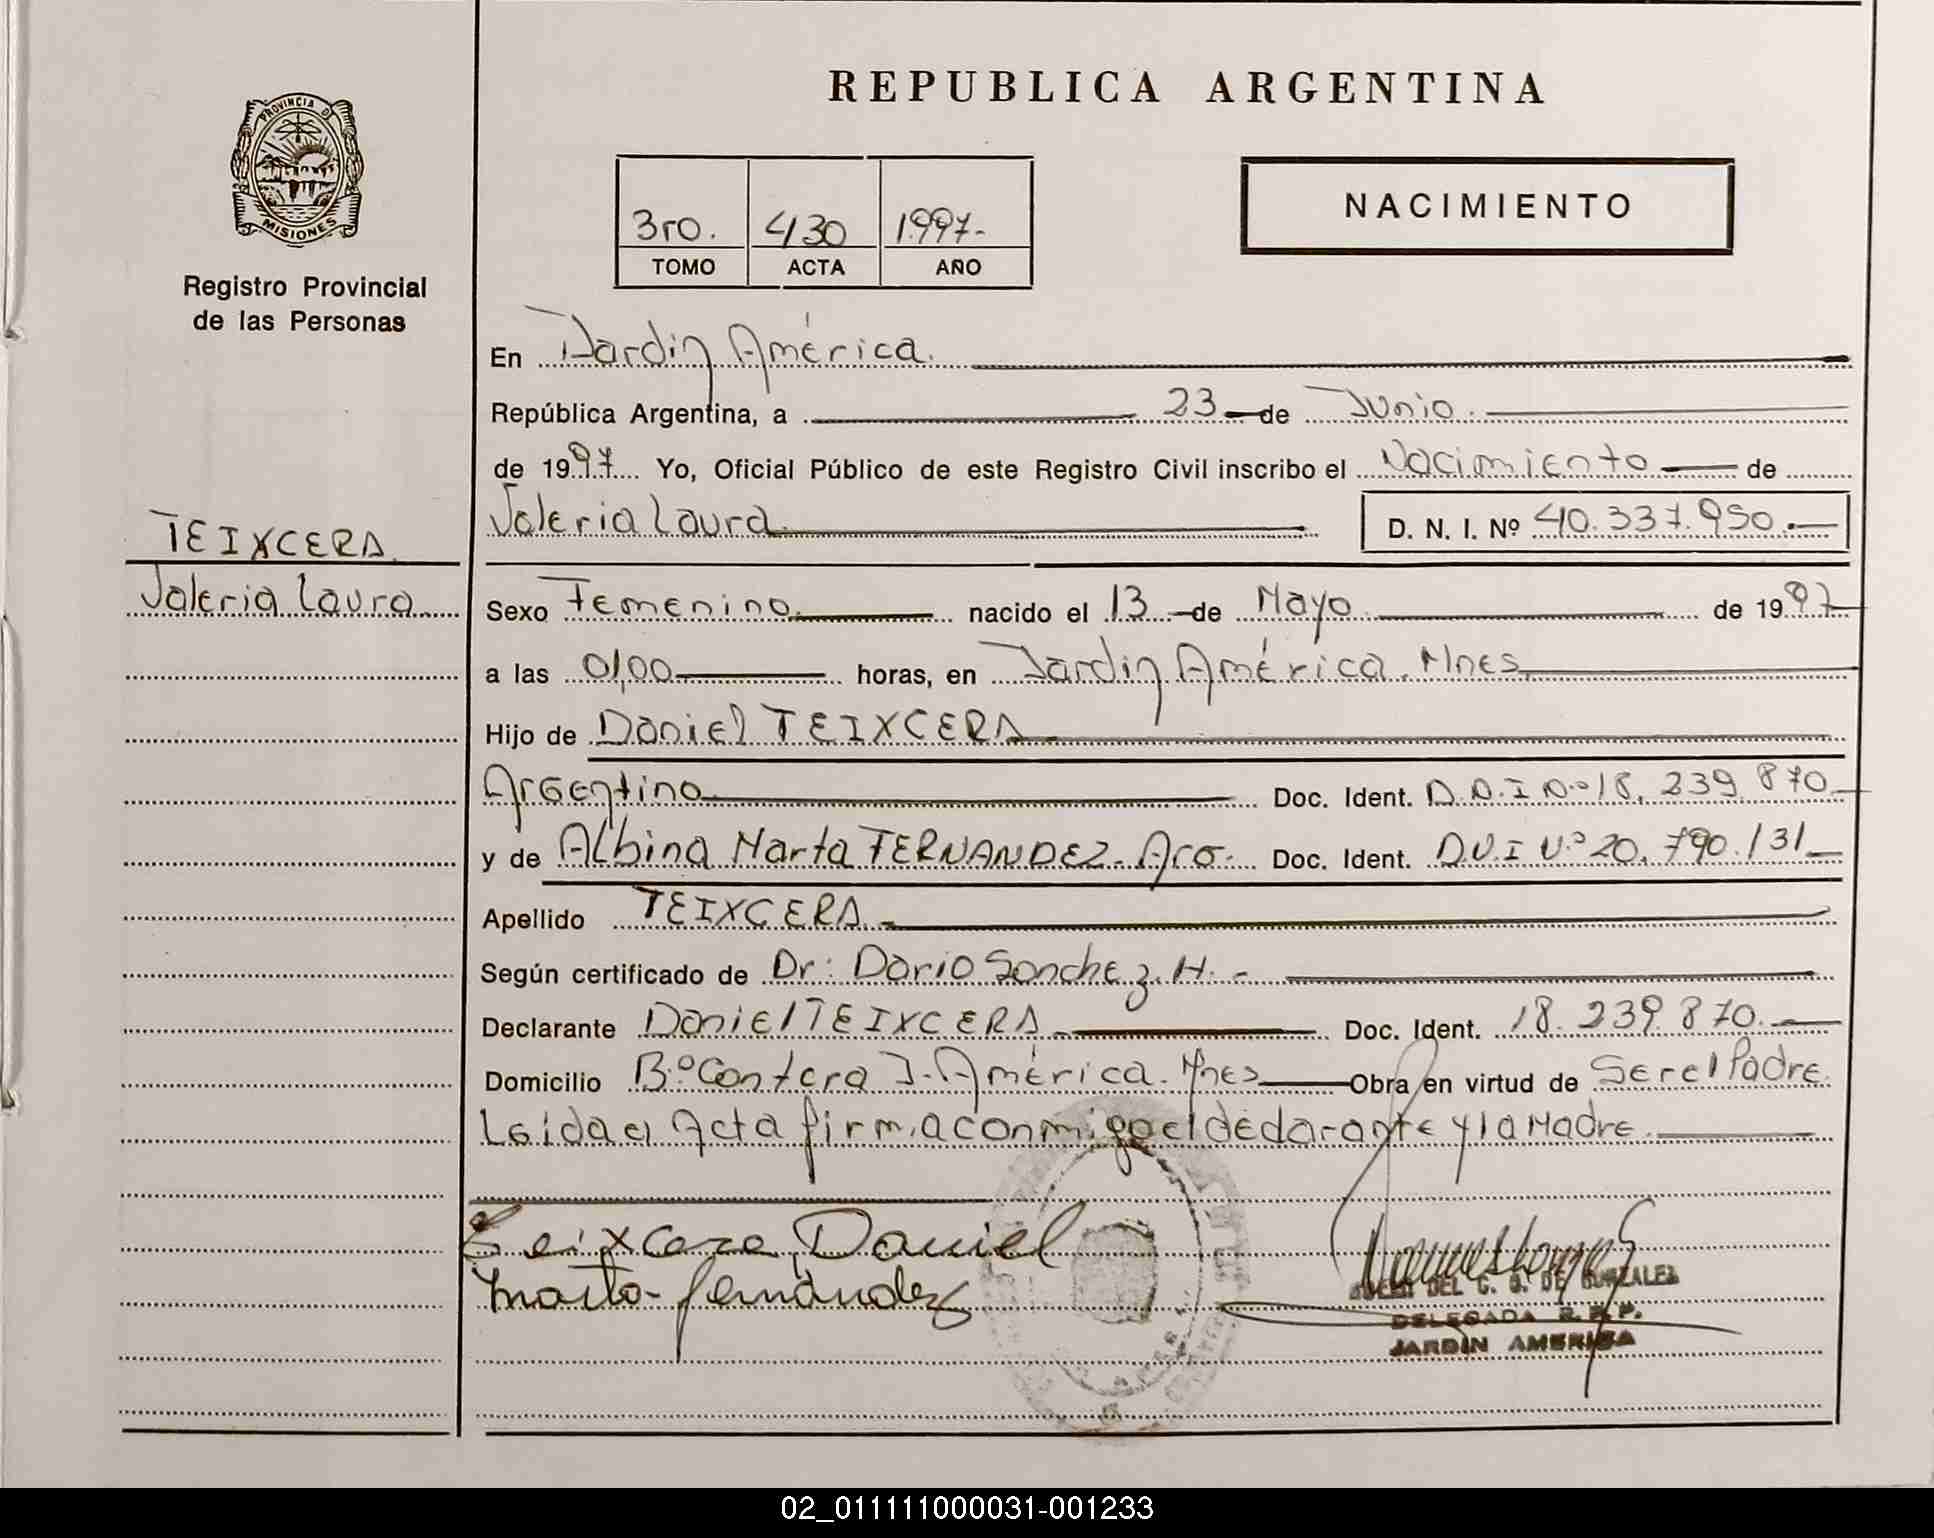 REPUBLICA ARGENTINA
PROVINCIA DE
MISIONES
Registro Provincial
de las Personas
3ro. 430 1997.-
TOMO ACTA AÑO
NACIMIENTO
En Jardin América.
República Argentina, a 23 de Junio.
de 1997 Yo, Oficial Público de este Registro Civil inscribo el Nacimiento de
Valeria Laura D. N. I. Nº 40.337.950.-
TEIXCERA
Valeria Laura
Sexo Femenino nacido el 13 de Mayo de 1997
a las 01,00 horas, en Jardin América. Mnes
Hijo de Daniel TEIXCERA
Argentino Doc. Ident. D.N.I Nº 18.239.870
y de Albina Marta FERNANDEZ. Arg. Doc. Ident. D.N.I Nº 20.790.131
Apellido TEIXCERA.-
Según certificado de Dr: Dario Sanchez.H.-
Declarante Daniel TEIXCERA Doc. Ident. 18.239.870.
Domicilio Bº Cantera J. América. Mnes Obra en virtud de Ser el Padre.
Leida el Acta firma conmigo el declarante y la Madre.
Teixcera Daniel
Marta Fernández
DEL C. G. DE GONZALEZ
DELEGADA R. P. P.
JARDIN AMERICA
02_011111000031-001233